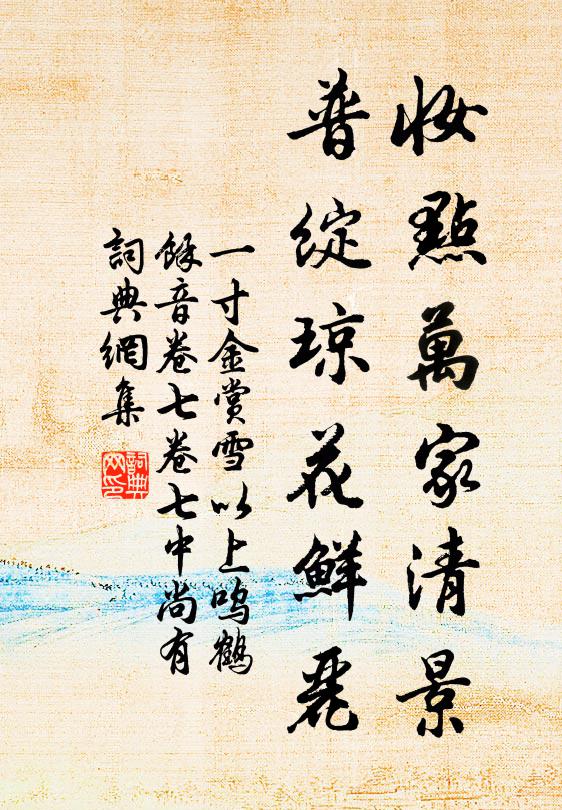 妝點萬家清景
普綻琼花鮮麗
一寸金賞雪以上鸣鶴
餘音卷七卷七中尚有
詞典網集
詞典
网印